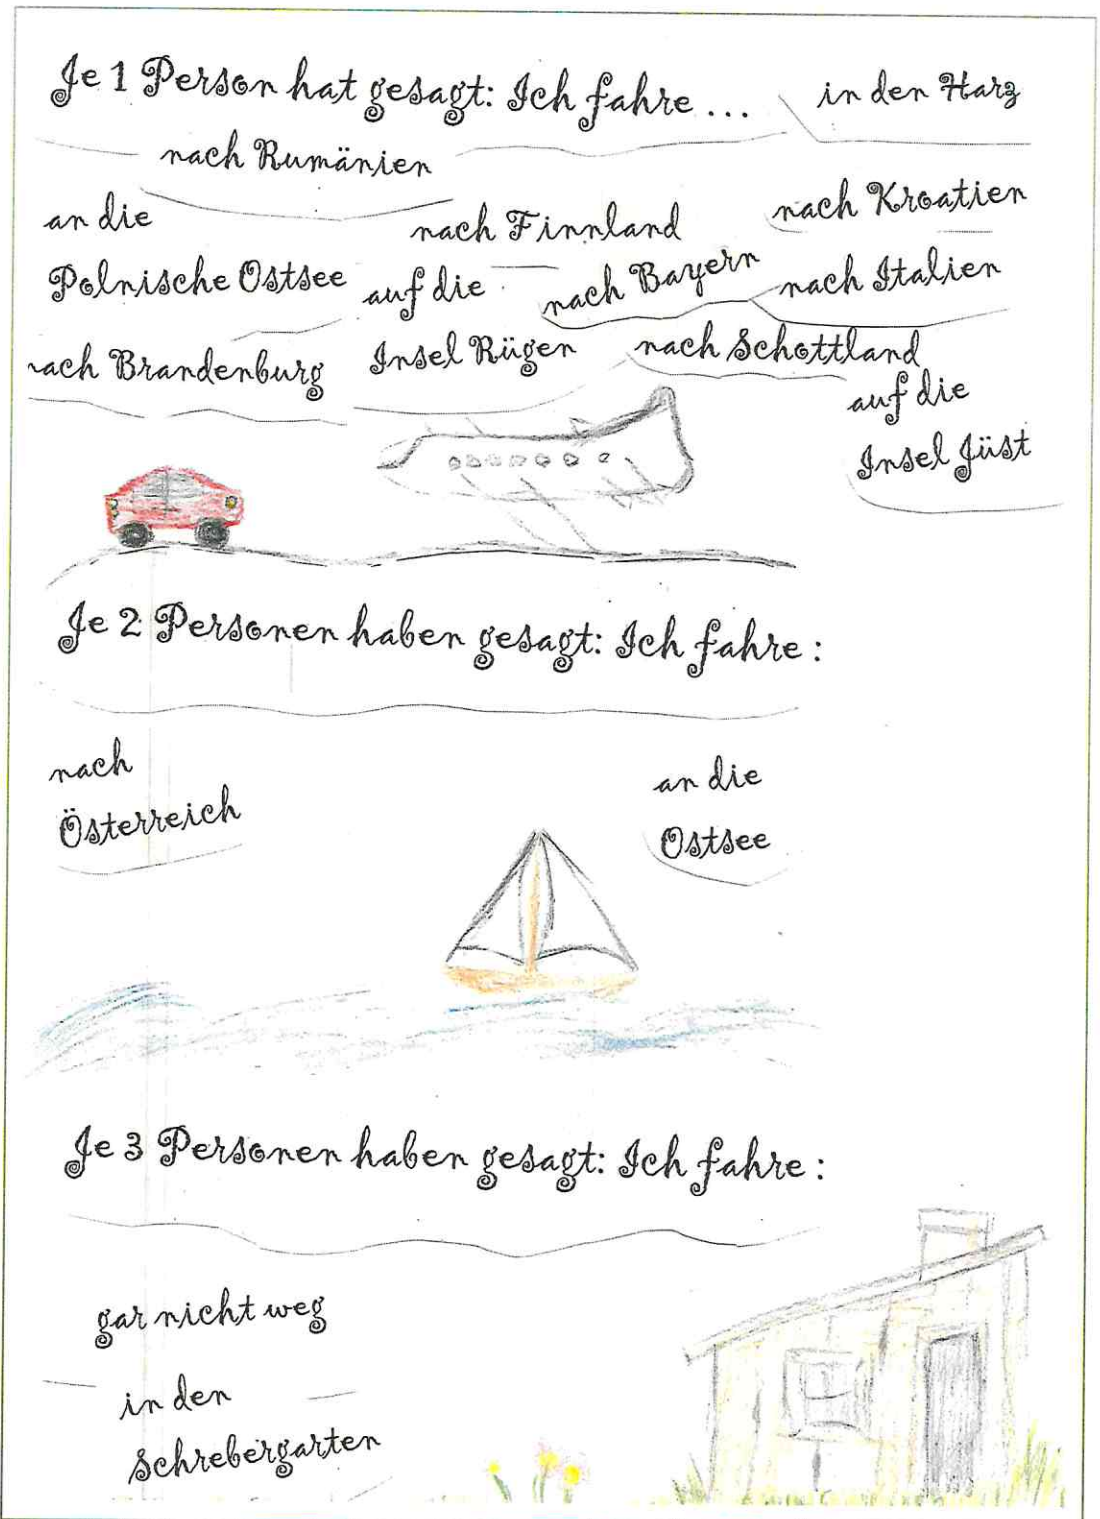 Je 1 Person hat gesagt: Ich fahre ...
in den Harz
nach Rumänien
an die
Polnische Ostsee
nach Finnland
nach Kroatien
auf die
Insel Rügen
nach Bayern
nach Italien
nach Brandenburg
nach Schottland
auf die
Insel Jüst
Je 2 Personen haben gesagt: Ich fahre :
nach
Österreich
an die
Ostsee
Je 3 Personen haben gesagt: Ich fahre :
gar nicht weg
in den
Schrebergarten